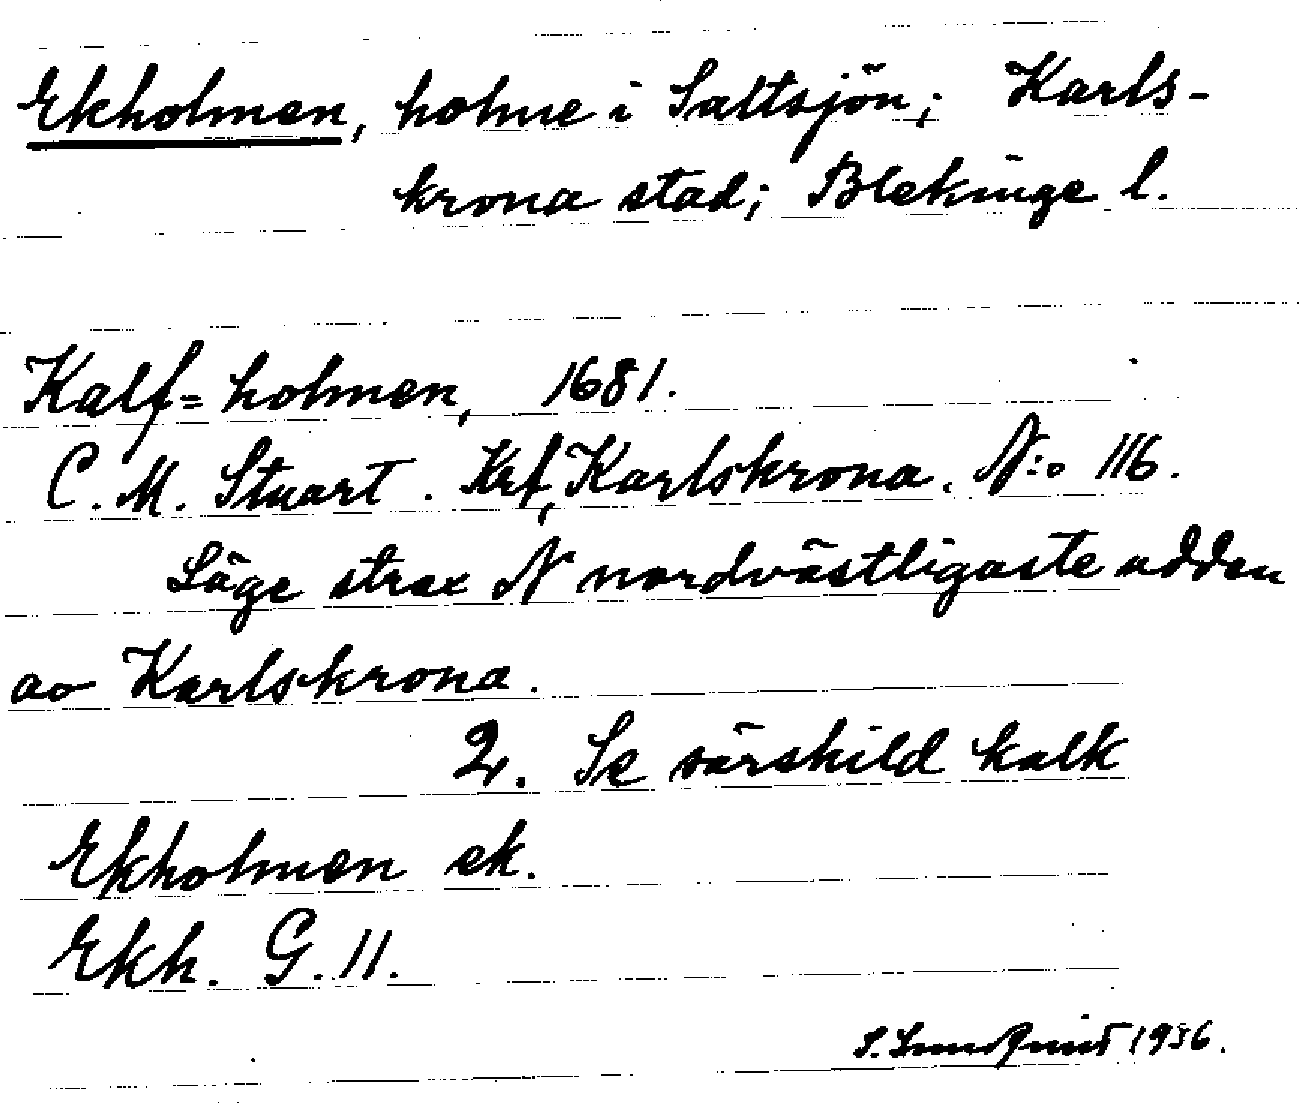 Ekholmen, holme i Saltsjön; Karls-
krona stad; Blekinge l.
Kalf=holmen, 1681.
C. M. Stuart. Krf, Karlskrona. N:o 116.
Läge strax N nordvästligaste udden
av Karlskrona.
2. Se särskild kalk
Ekholmen ek.
Ekh. G. 11.
S. Lundquist 1936.